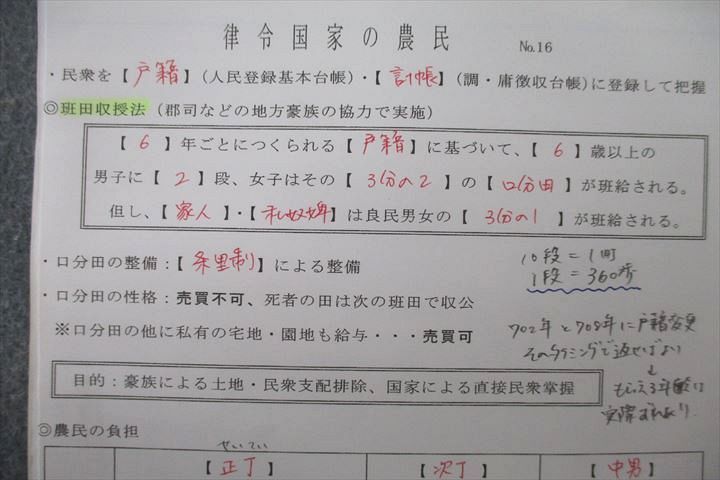 律令国家の農民 No.16
・民衆を【戸籍】(人民登録基本台帳)・【計帳】(調・庸徴収台帳)に登録して把握
◎班田収授法(郡司などの地方豪族の協力で実施)
【6】年ごとにつくられる【戸籍】に基づいて、【6】歳以上の
男子に【2】段、女子はその【3分の2】の【口分田】が班給される。
但し、【家人】・【私奴婢】は良民男女の【3分の1】が班給される。
・口分田の整備:【条里制】による整備
10段=1町
1段=360歩
・口分田の性格:売買不可、死者の田は次の班田で収公
※口分田の他に私有の宅地・園地も給与・・・売買可
702年と708年に戸籍変更
そのタイミングで返せばよい
↓
もらえる年齢は
実際
目的:豪族による土地・民衆支配排除、国家による直接民衆掌握
◎農民の負担
せいてい
【正丁】 【次丁】 【中男】